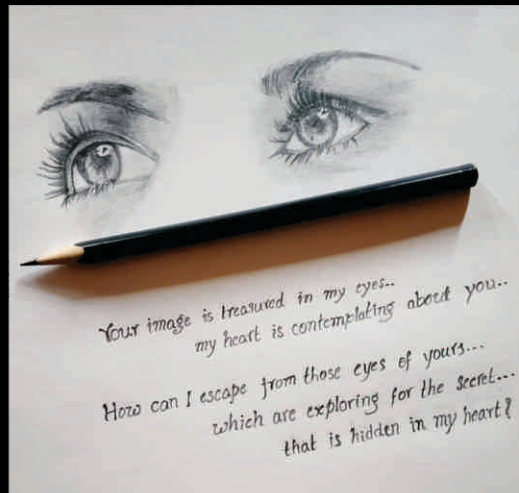 Your image is treasured in my eyes..
my heart is contemplating about you..
How can I escape from those eyes of yours...
which are exploring for the secret...
that is hidden in my heart?